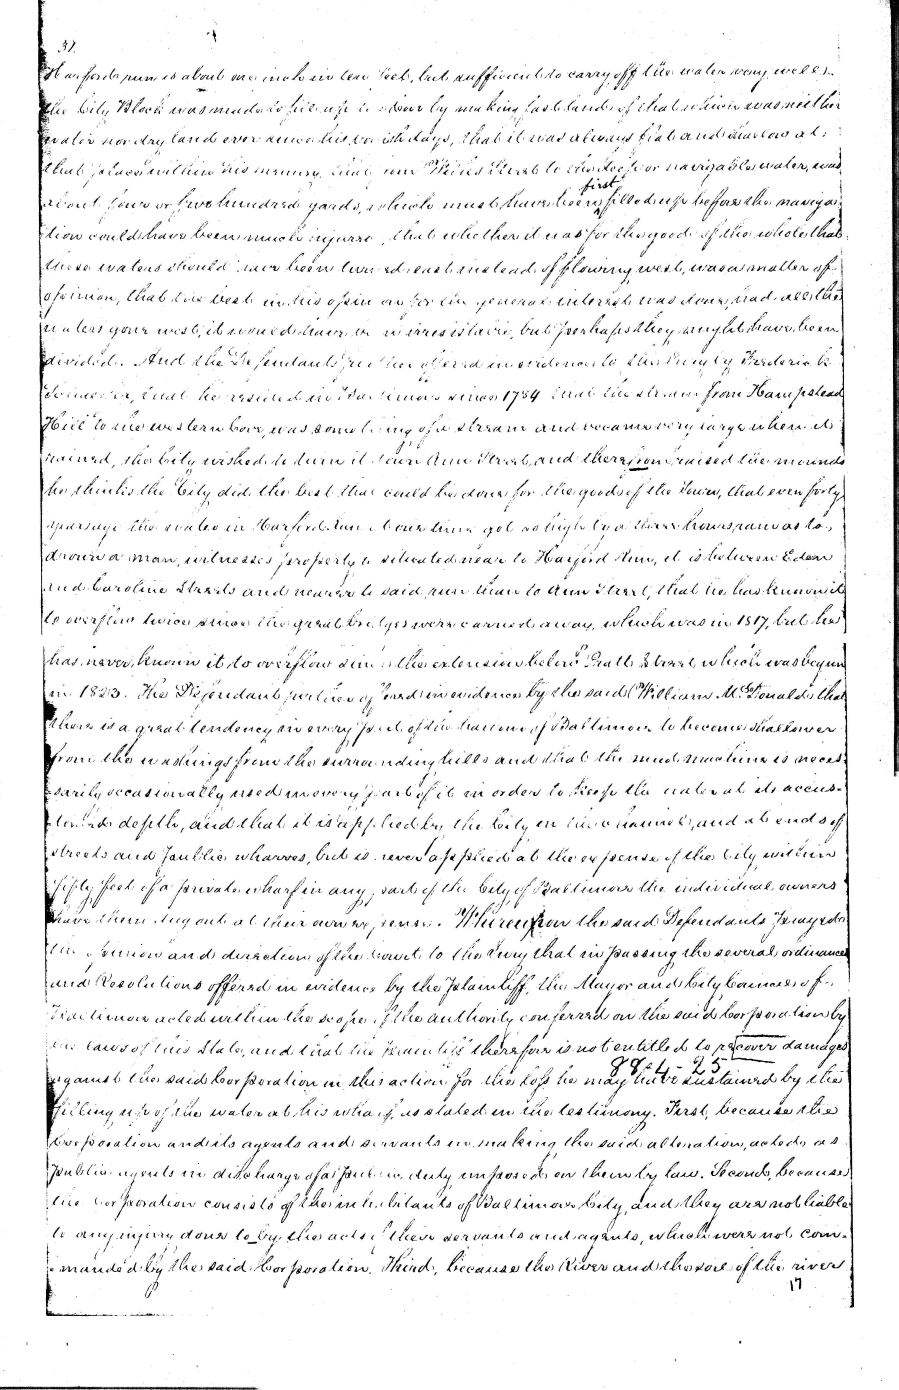 31.
Harfords run is about one inch in ten feet, but sufficient to carry off the water very well.
the City Block was made to fill up the Cove by making fast land of that which was neither
water nor dry land ever since his boyish days, that it was always flat and shallow at
that place within his memory, that from Wilks Street to the deep or navigable water, was
about four or five hundred yards, which must have been first filled up before the naviga-
tion could have been much injured, that whether it was for the good of the whole that
these waters should have been turned east instead of flowing west, was a matter of
opinion, that the best in his opinion for the general interest was done, had all the
waters gone west, it would have been irresistable, but perhaps they might have been
divided. And the Defendants further offered in evidence to the Jury by Frederick
that he resided in Baltimore since 1784 that the stream from Hampstead
Hill to the western Cove, was something of a stream and became very large when it
rained, the City wished to turn it down Ann Street, and therefrom raised the mounds
he thinks the City did the best that could be done for the good of the Town, that even forty
years ago the water in Harford Run at one time got so high by a three hours rain as to
drown a man, witnesses property is situated near to Harford Run, it is between Eden
and Caroline Streets and nearer to said run than to Ann Street, that he has known it
to overflow twice since the great bridges were carried away, which was in 1817, but he
has never known it to overflow since the extension below Pratt Street which was begun
in 1823. The Defendant further offered in evidence by the said William McDonald that
there is a great tendency in every part of the harbour of Baltimore to become shallower
from the washings from the surrounding hills and that the mud machine is neces-
sarily occasionally used in every part of it in order to keep the water at its accus-
tomed depth, and that it is applied by the City in the channels, and at ends of
streets and public wharves, but is never applied at the expense of the City within
fifty feet of a private wharf in any part of the City of Baltimore the individual owners
have them dug out at their own expense. Whereupon the said Defendants prayed
the opinion and direction of the Court to the Jury that in passing the several ordinances
and Resolutions offered in evidence by the Plaintiff, the Mayor and City Council of
Baltimore acted within the scope of the authority conferred on the said Corporation by
the laws of this State, and that the Plaintiff therefore is not entitled to recover damages
884-25
against the said Corporation in this action for the loss he may have sustained by the
filling up of the water at his wharf, as stated in the testimony. First, because the
Corporation and its agents and servants in making the said alteration, acted as
public agents in discharge of a public duty imposed on them by law. Second, because
the Corporation consists of the inhabitants of Baltimore City, and they are not liable
to any injury done to by the acts of their servants and agents, which were not com-
manded by the said Corporation. Third, because the River and the soil of the river
17